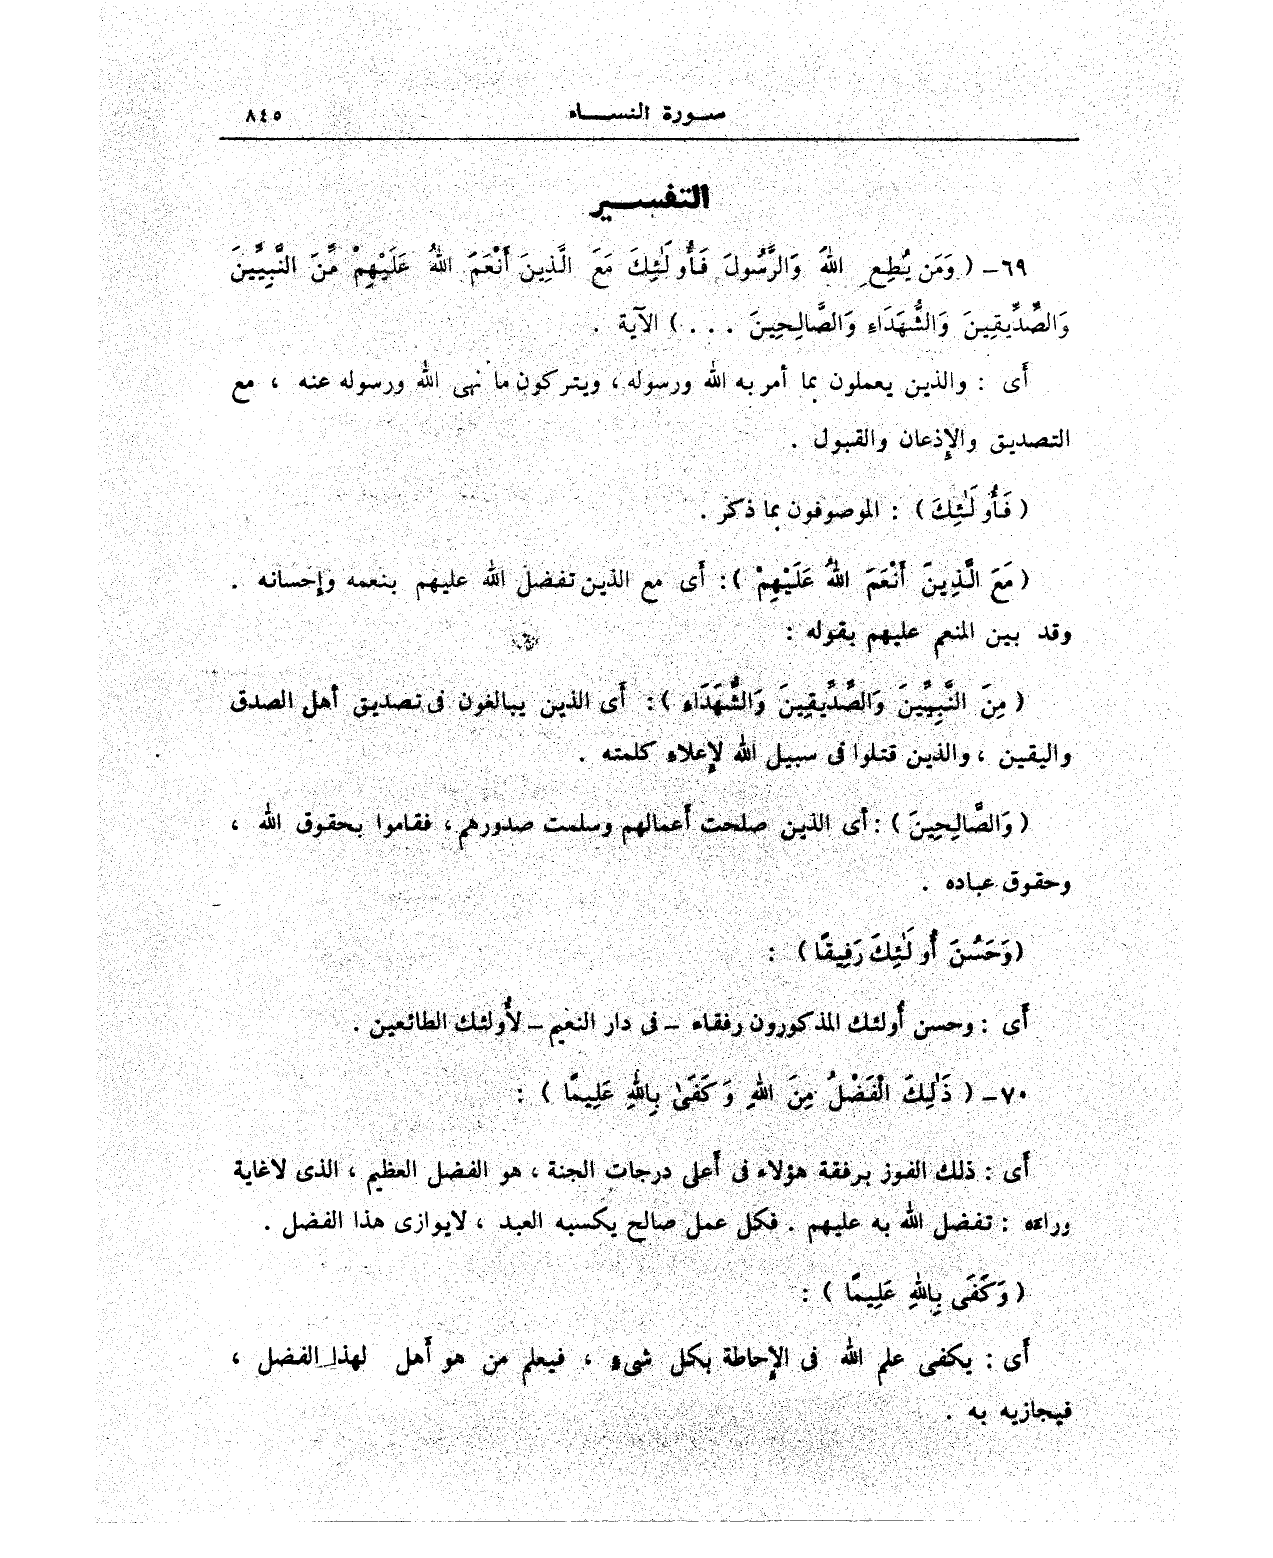 سورة النساء ٨٤٥
التفسير
٦٩- ( وَمَن يُطِعِ اللهَ وَالرَّسُولَ فَأُولَٰئِكَ مَعَ الَّذِينَ أَنْعَمَ اللهُ عَلَيْهِمْ مِّنَ النَّبِيِّينَ
وَالصِّدِّيقِينَ وَالشُّهَدَاءِ وَالصَّالِحِينَ . . . ) الآية .
أَى : والذين يعملون بما أمر به الله ورسوله ، ويتركون ما نهى الله ورسوله عنه ، مع
التصديق والإِذعان والقبول .
( فَأُولَٰئِكَ ) : الموصوفون بما ذكر .
( مَعَ الَّذِينَ أَنْعَمَ اللهُ عَلَيْهِمْ ) : أَى مع الذين تفضل الله عليهم بنعمه وإحسانه .
وقد بين المنعم عليهم بقوله :
( مِنَ النَّبِيِّينَ وَالصِّدِّيقِينَ وَالشُّهَدَاءِ ) : أَى الذين يبالغون فى تصديق أهل الصدق
واليقين ، والذين قتلوا فى سبيل الله لإِعلاء كلمته .
( وَالصَّالِحِينَ ) : أى الذين صلحت أَعمالهم وسلمت صدورهم ، فقاموا بحقوق الله ،
وحقوق عباده .
( وَحَسُنَ أُولَٰئِكَ رَفِيقًا ) :
أَى : وحسن أُولئك المذكورون رفقاء – فى دار النعيم – لأُولئك الطائعين .
٧٠- ( ذَٰلِكَ الْفَضْلُ مِنَ اللهِ وَكَفَىٰ بِاللهِ عَلِيمًا ) :
أَى : ذلك الفوز برفقة هؤلاء فى أَعلى درجات الجنة ، هو الفضل العظيم ، الذى لاغاية
وراءه : تفضل الله به عليهم . فكل عمل صالح يكسبه العبد ، لايوازى هذا الفضل .
( وَكَفَى بِاللهِ عَلِيمًا ) :
أَى : يكفى علم الله فى الإحاطة بكل شىءٍ ، فيعلم من هو أَهل لهذا الفضل ،
فيجازيه به .